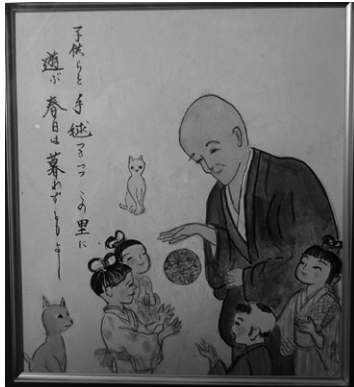 子供らと 手毬つきつつ この里に
遊ぶ 春日は暮れずともよし